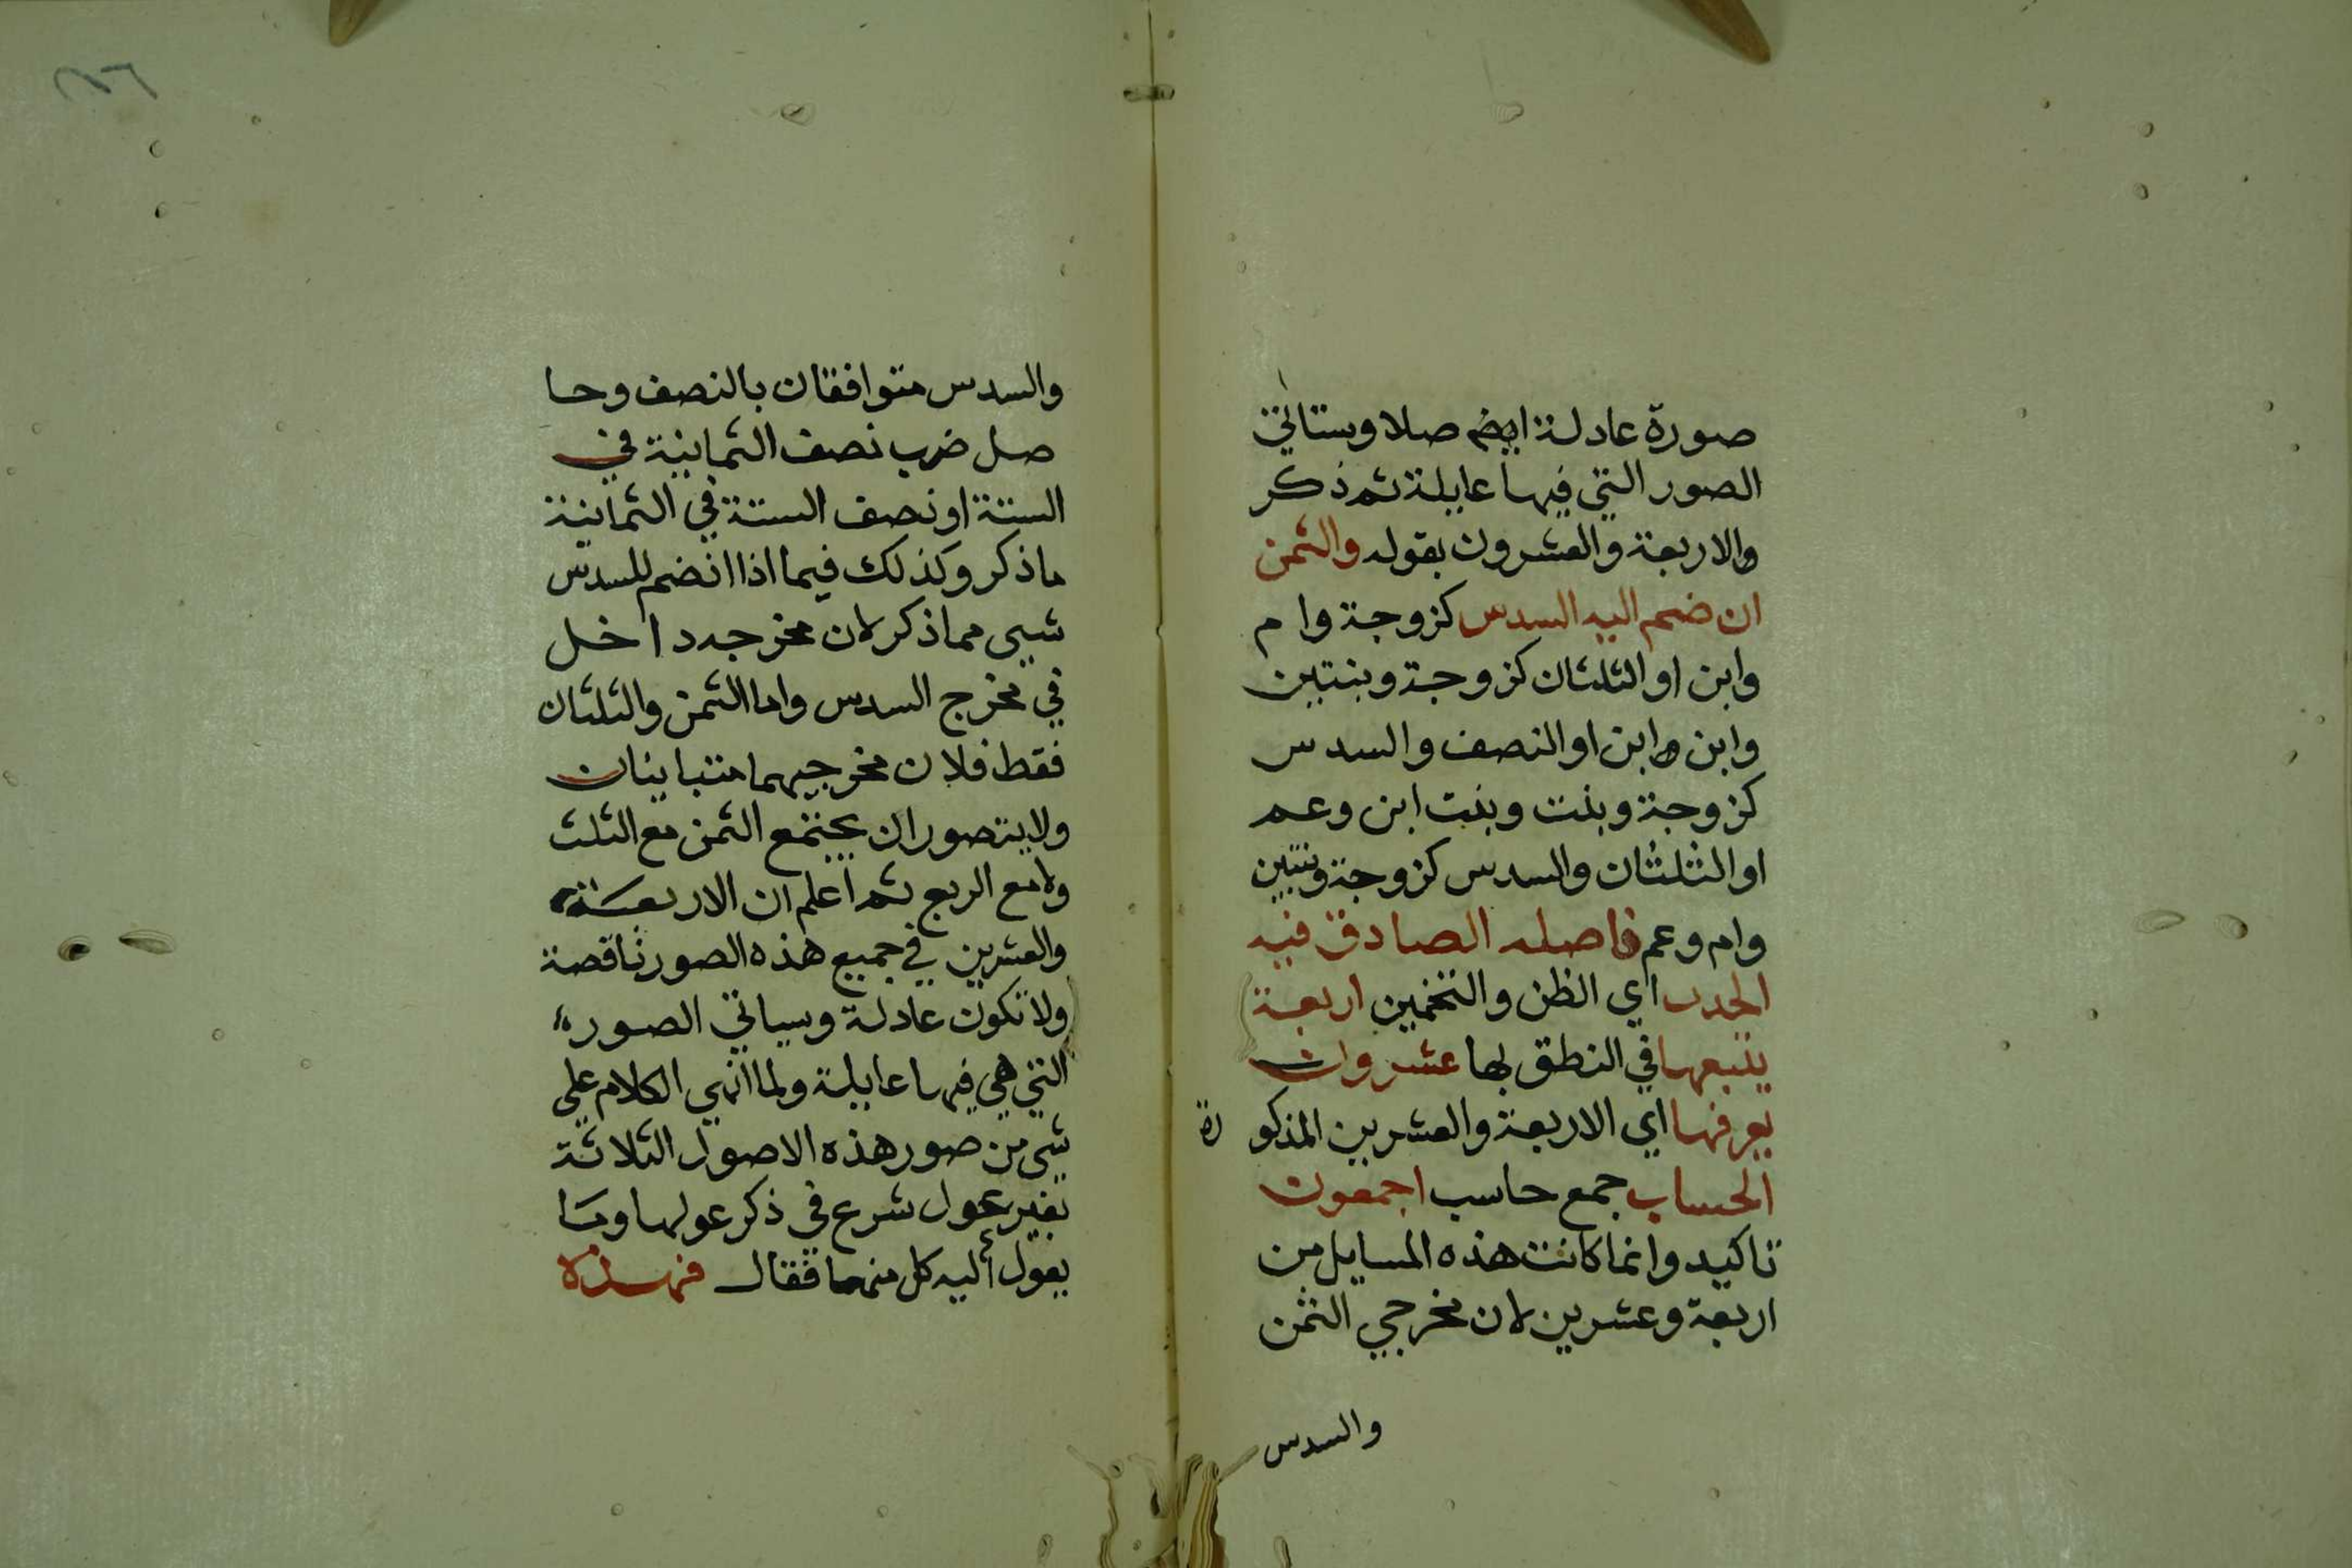 صورة عادلة ايضم صلا وستاتي
الصور التي فيها عايلة ثم ذكر
والاربعة والعشرون بقوله والثمن
ان ضم اليه السدس كزوجة وام
وابن او الثلثان كزوجة وبنتين
وابن وابن او النصف والسدس
كزوجة وبنت وبنت ابن وعم
او الثلثان والسدس كزوجة وبنتين
وام وعم فاصله الصادق فيه
الحدس اي الظن والتخمين اربعة
يتبعها في النطق بها عشرون
يعرفها اي الاربعة والعشرين المذكو رة
الحساب جمع حاسب اجمعون
تاكيد وانما كانت هذه المسايل من
اربعة وعشرين لان مخرجي الثمن
والسدس
والسدس متوافقان بالنصف وحا
صل ضرب نصف الثمانية في
الستة او نصف الستة في الثمانية
ما ذكر وكذلك فيما اذا انضم للسدس
شيى مما ذكر لان مخرجه داخل
في مخرج السدس واما الثمن والثلثان
فقط فلان مخرجيهما متباينان
ولا يتصور ان يجتمع الثمن مع الثلث
ولا مع الربع ثم اعلم ان الاربعة
والعشرين في جميع هذه الصور ناقصة
ولا تكون عادلة وسياتي الصوره
التي هي فيها عايلة ولما انهي الكلام علي
شي من صور هذه الاصول الثلاثة
بغير عول شرع في ذكر عولها وما
يعول اليه كل منهما فقال فهذه